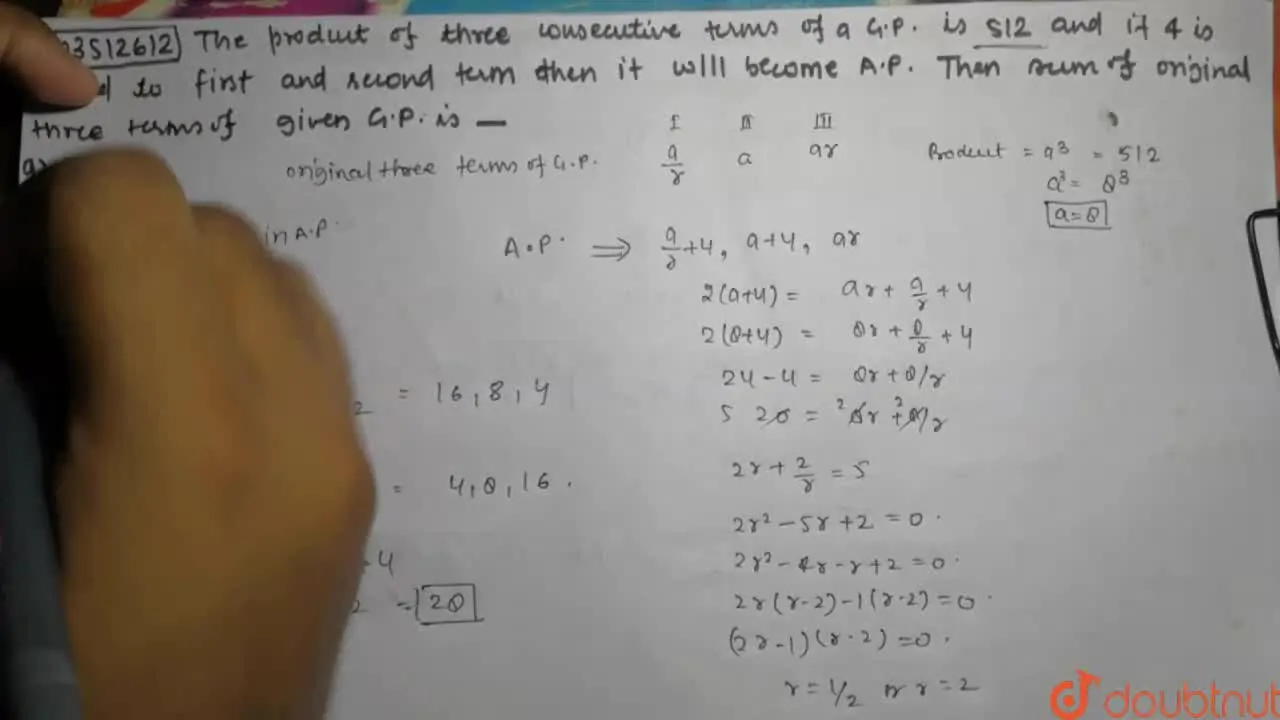 23512612] The product of three consecutive terms of a G.P. is 512 and if 4 is
d to first and second term then it will become A.P. Then sum of original
three terms of given G.P. is —
I II III
original three terms of G.P. a/r a ar
Product = a³ = 512
a³ = 8³
a=8
in A.P.
A.P. ⟹ a/r+4, a+4, ar
2(a+4) = ar + a/r + 4
2(8+4) = 8r + 8/r + 4
24-4 = 8r+8/r
5 20 = 2 8r + 2 8/r
2r + 2/r = 5
2r² - 5r + 2 = 0.
2r² - 4r - r + 2 = 0.
2r(r-2) - 1(r-2) = 0.
(2r-1)(r-2) = 0.
r = 1/2 or r = 2
2 = 16, 8, 4
= 4, 8, 16.
4
2 = 28
doubtnut